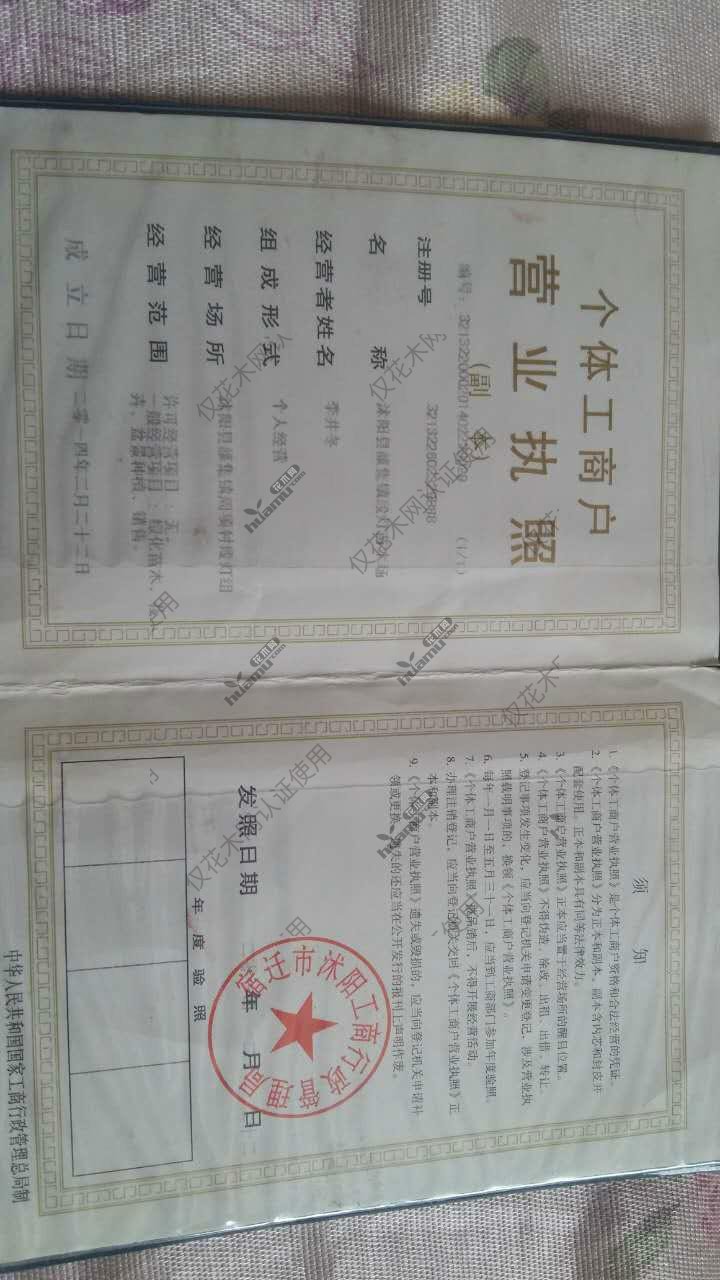 个体工商户
营业执照
(副 本)
编号：
(1/1)
注册号
名 称 沭阳县
经营者姓名 李井冬
组成形式 个人经营
经营场所 沭阳县
经营范围 许可经营项目：无。
一般经营项目：绿化苗木、
盆景种植、销售。
成立日期 二零一四年二月二十二日
须 知
1. 《个体工商户营业执照》是个体工商户资格和合法经营的凭证。
2. 《个体工商户营业执照》分为正本和副本，副本含内芯和封皮并
配套使用。正本和副本具有同等法律效力。
3. 《个体工商户营业执照》正本应当置于经营场所的醒目位置。
4. 《个体工商户营业执照》不得伪造、涂改、出租、出借、转让。
5. 登记事项发生变化，应当向登记机关申请变更登记，涉及营业执
照载明事项的，换领《个体工商户营业执照》。
6. 每年一月一日至五月三十一日，应当到工商部门参加年度验照。
7. 《个体工商户营业执照》被吊销后，不得开展经营活动。
8. 办理注销登记，应当向登记机关交回《个体工商户营业执照》正
本和副本。
9. 《个体工商户营业执照》遗失或毁损的，应当向登记机关申请补
领或更换，遗失的还应当在公开发行的报刊上声明作废。
发照日期 年 月 日
宿迁市沭阳工商行政管理局
年度验照
中华人民共和国国家工商行政管理总局制
仅花木网认证使用
花木网
huamu.com